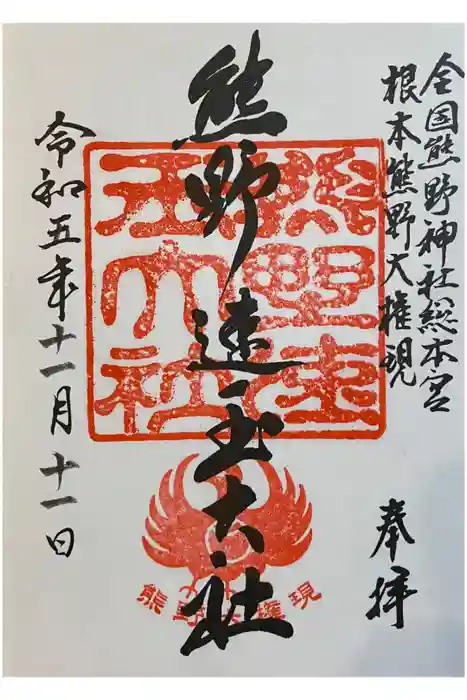 全国熊野神社総本宮
根本熊野大権現
奉拝
熊野速玉大社
令和五年十一月十一日
熊野大権現